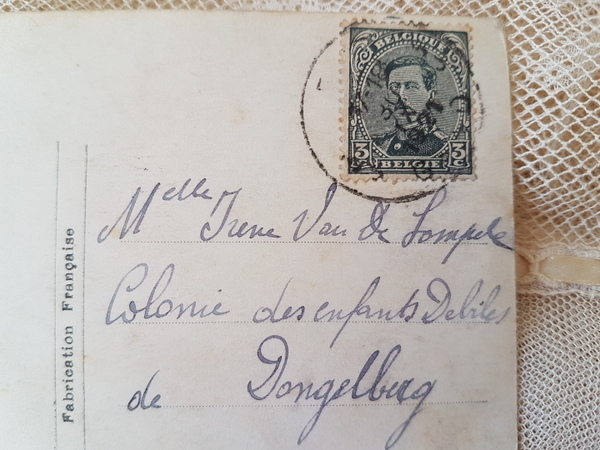 BELGIQUE
3 C 3 C
BELGIË
Melle Irene Van de Lampele
Colonie des enfants Debiles
de Dongelberg
Fabrication Française